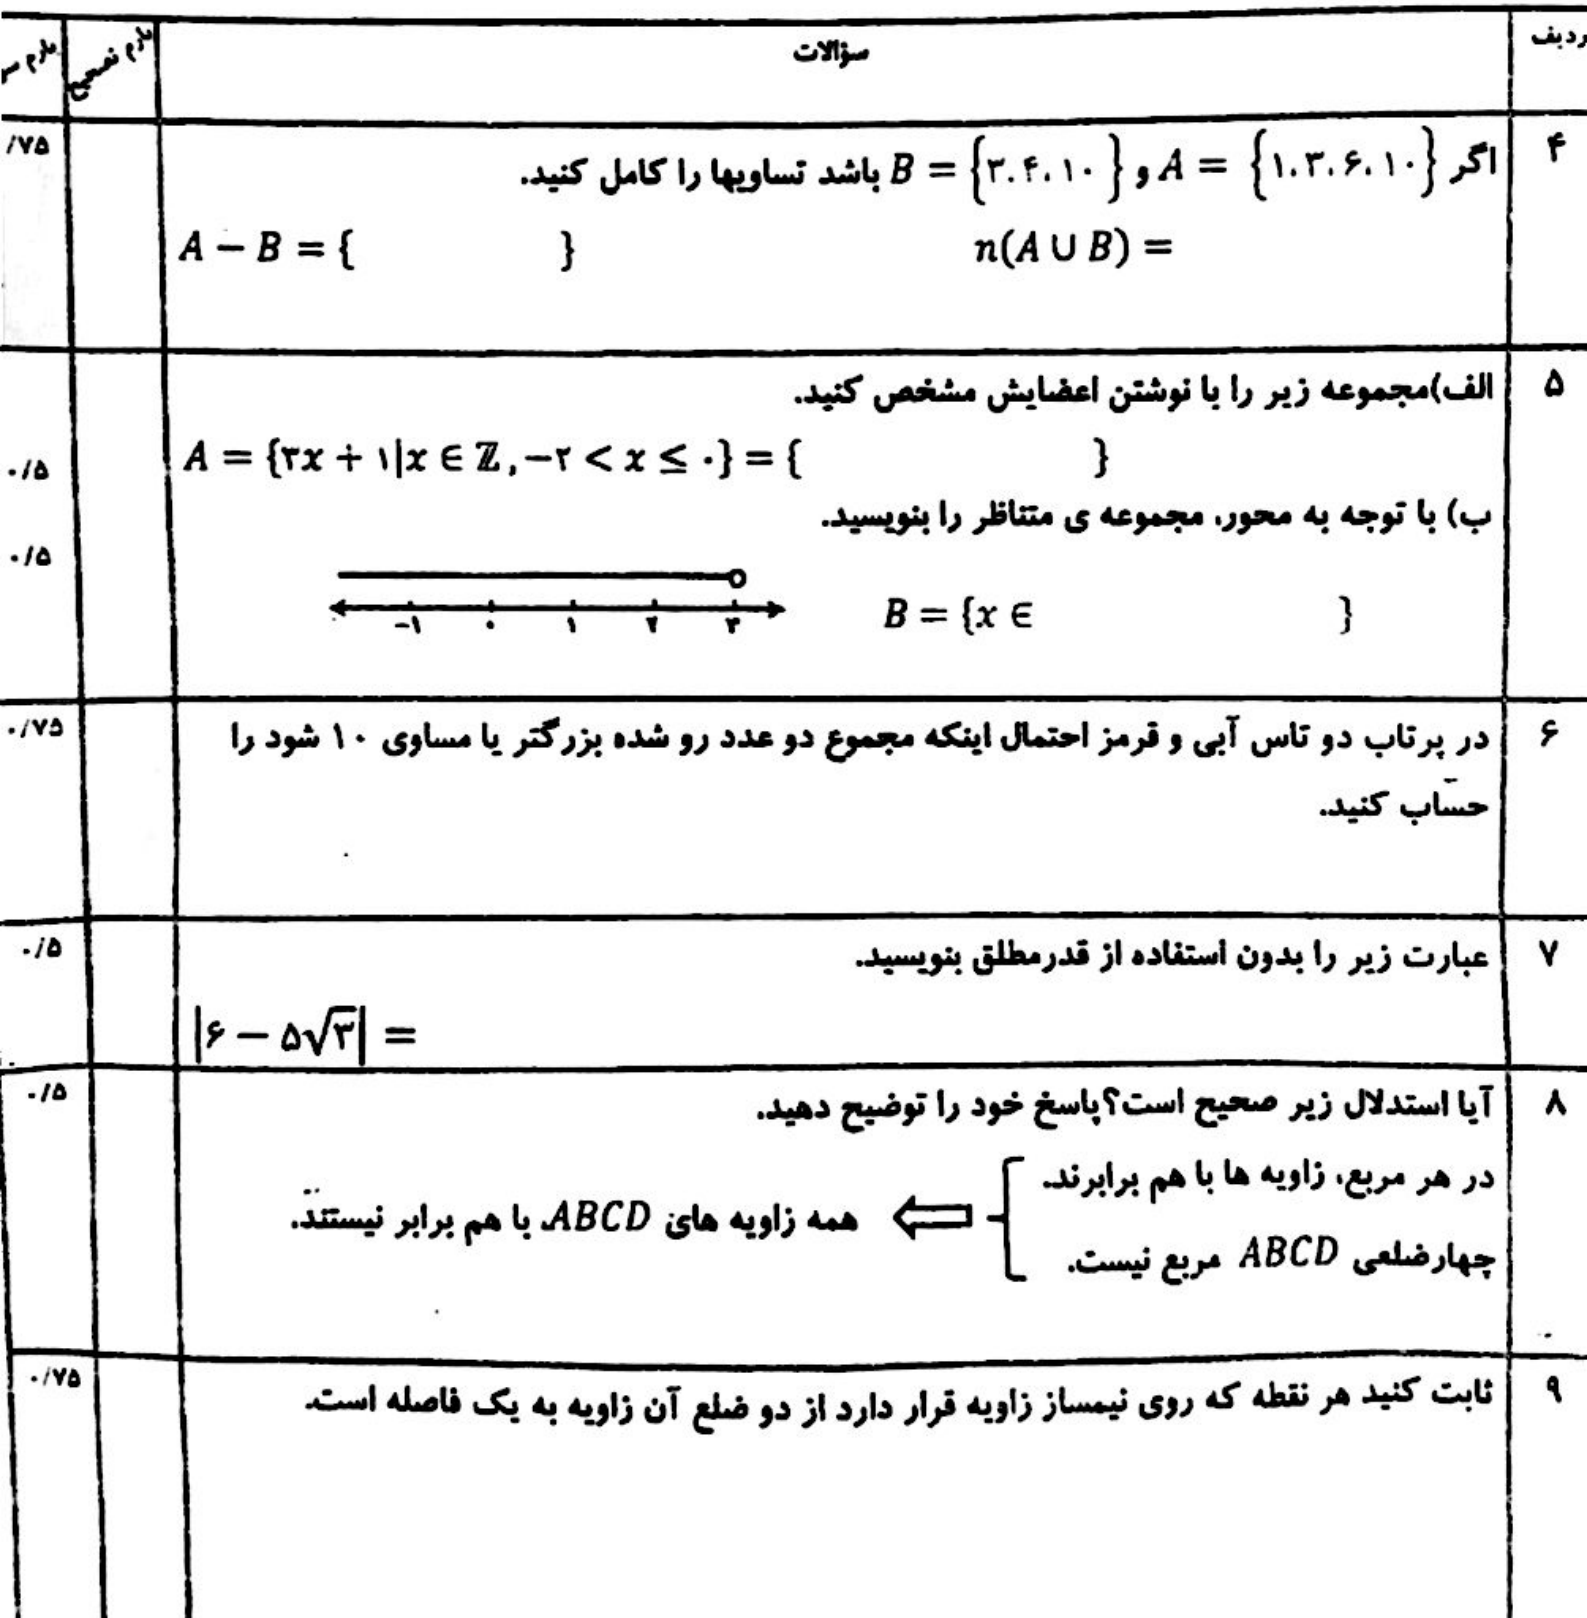 ردیف سؤالات بارم تصحیح
۴ اگر A = {۱,۳,۶,۱۰} و B = {۳,۴,۱۰} باشد تساویها را کامل کنید. /۷۵
A − B = { } n(A ∪ B) =
۵ الف)مجموعه زیر را با نوشتن اعضایش مشخص کنید.
A = {۳x + ۱|x ∈ ℤ, −۲ < x ≤ ۰} = { } ۰/۵
ب) با توجه به محور، مجموعه ی متناظر را بنویسید.
۰/۵
B = {x ∈ }
−۱ ۰ ۱ ۲ ۳
۶ در پرتاب دو تاس آبی و قرمز احتمال اینکه مجموع دو عدد رو شده بزرگتر یا مساوی ۱۰ شود را ۰/۷۵
حساب کنید.
۷ عبارت زیر را بدون استفاده از قدرمطلق بنویسید. ۰/۵
|۶ − ۵√۳| =
۸ آیا استدلال زیر صحیح است؟پاسخ خود را توضیح دهید. ۰/۵
در هر مربع، زاویه ها با هم برابرند.
چهارضلعی ABCD مربع نیست.
همه زاویه های ABCD با هم برابر نیستند.
۹ ثابت کنید هر نقطه که روی نیمساز زاویه قرار دارد از دو ضلع آن زاویه به یک فاصله است. ۰/۷۵